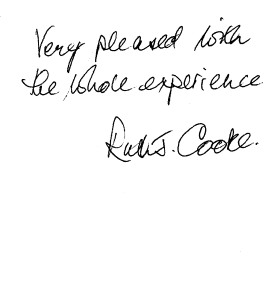 Very pleased with
the whole experience
Ruth J. Cooke.